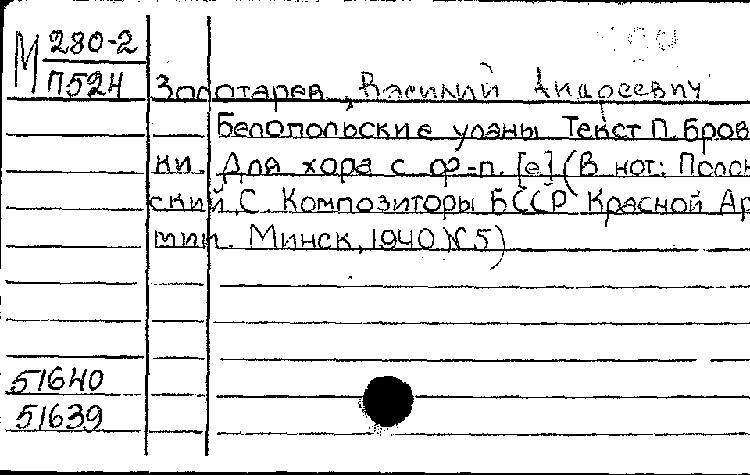 М 280-2
П524 Золотарев, Василий Андреевич
Белопольские уланы Текст П. Бров
ки. Для хора с ф-п. [е] (В нот: Полон
ский, С. Композиторы БССР Красной Ар
мии. Минск, 1940 №5)
51640
51639